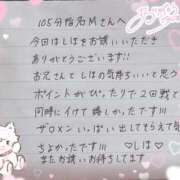 105分指名Mさんへ
今回はしほをお誘いいただき
ありがとうございます!!
お兄さんとしほの気持ちいいと思う
ポイントがぴったりで2回戦と
同時にイケて嬉しかったです!!!
ザーメンいっぱい出してもらえて気持
ちよかったです!!! ♡しほ♡
またお誘いお待ちしてます